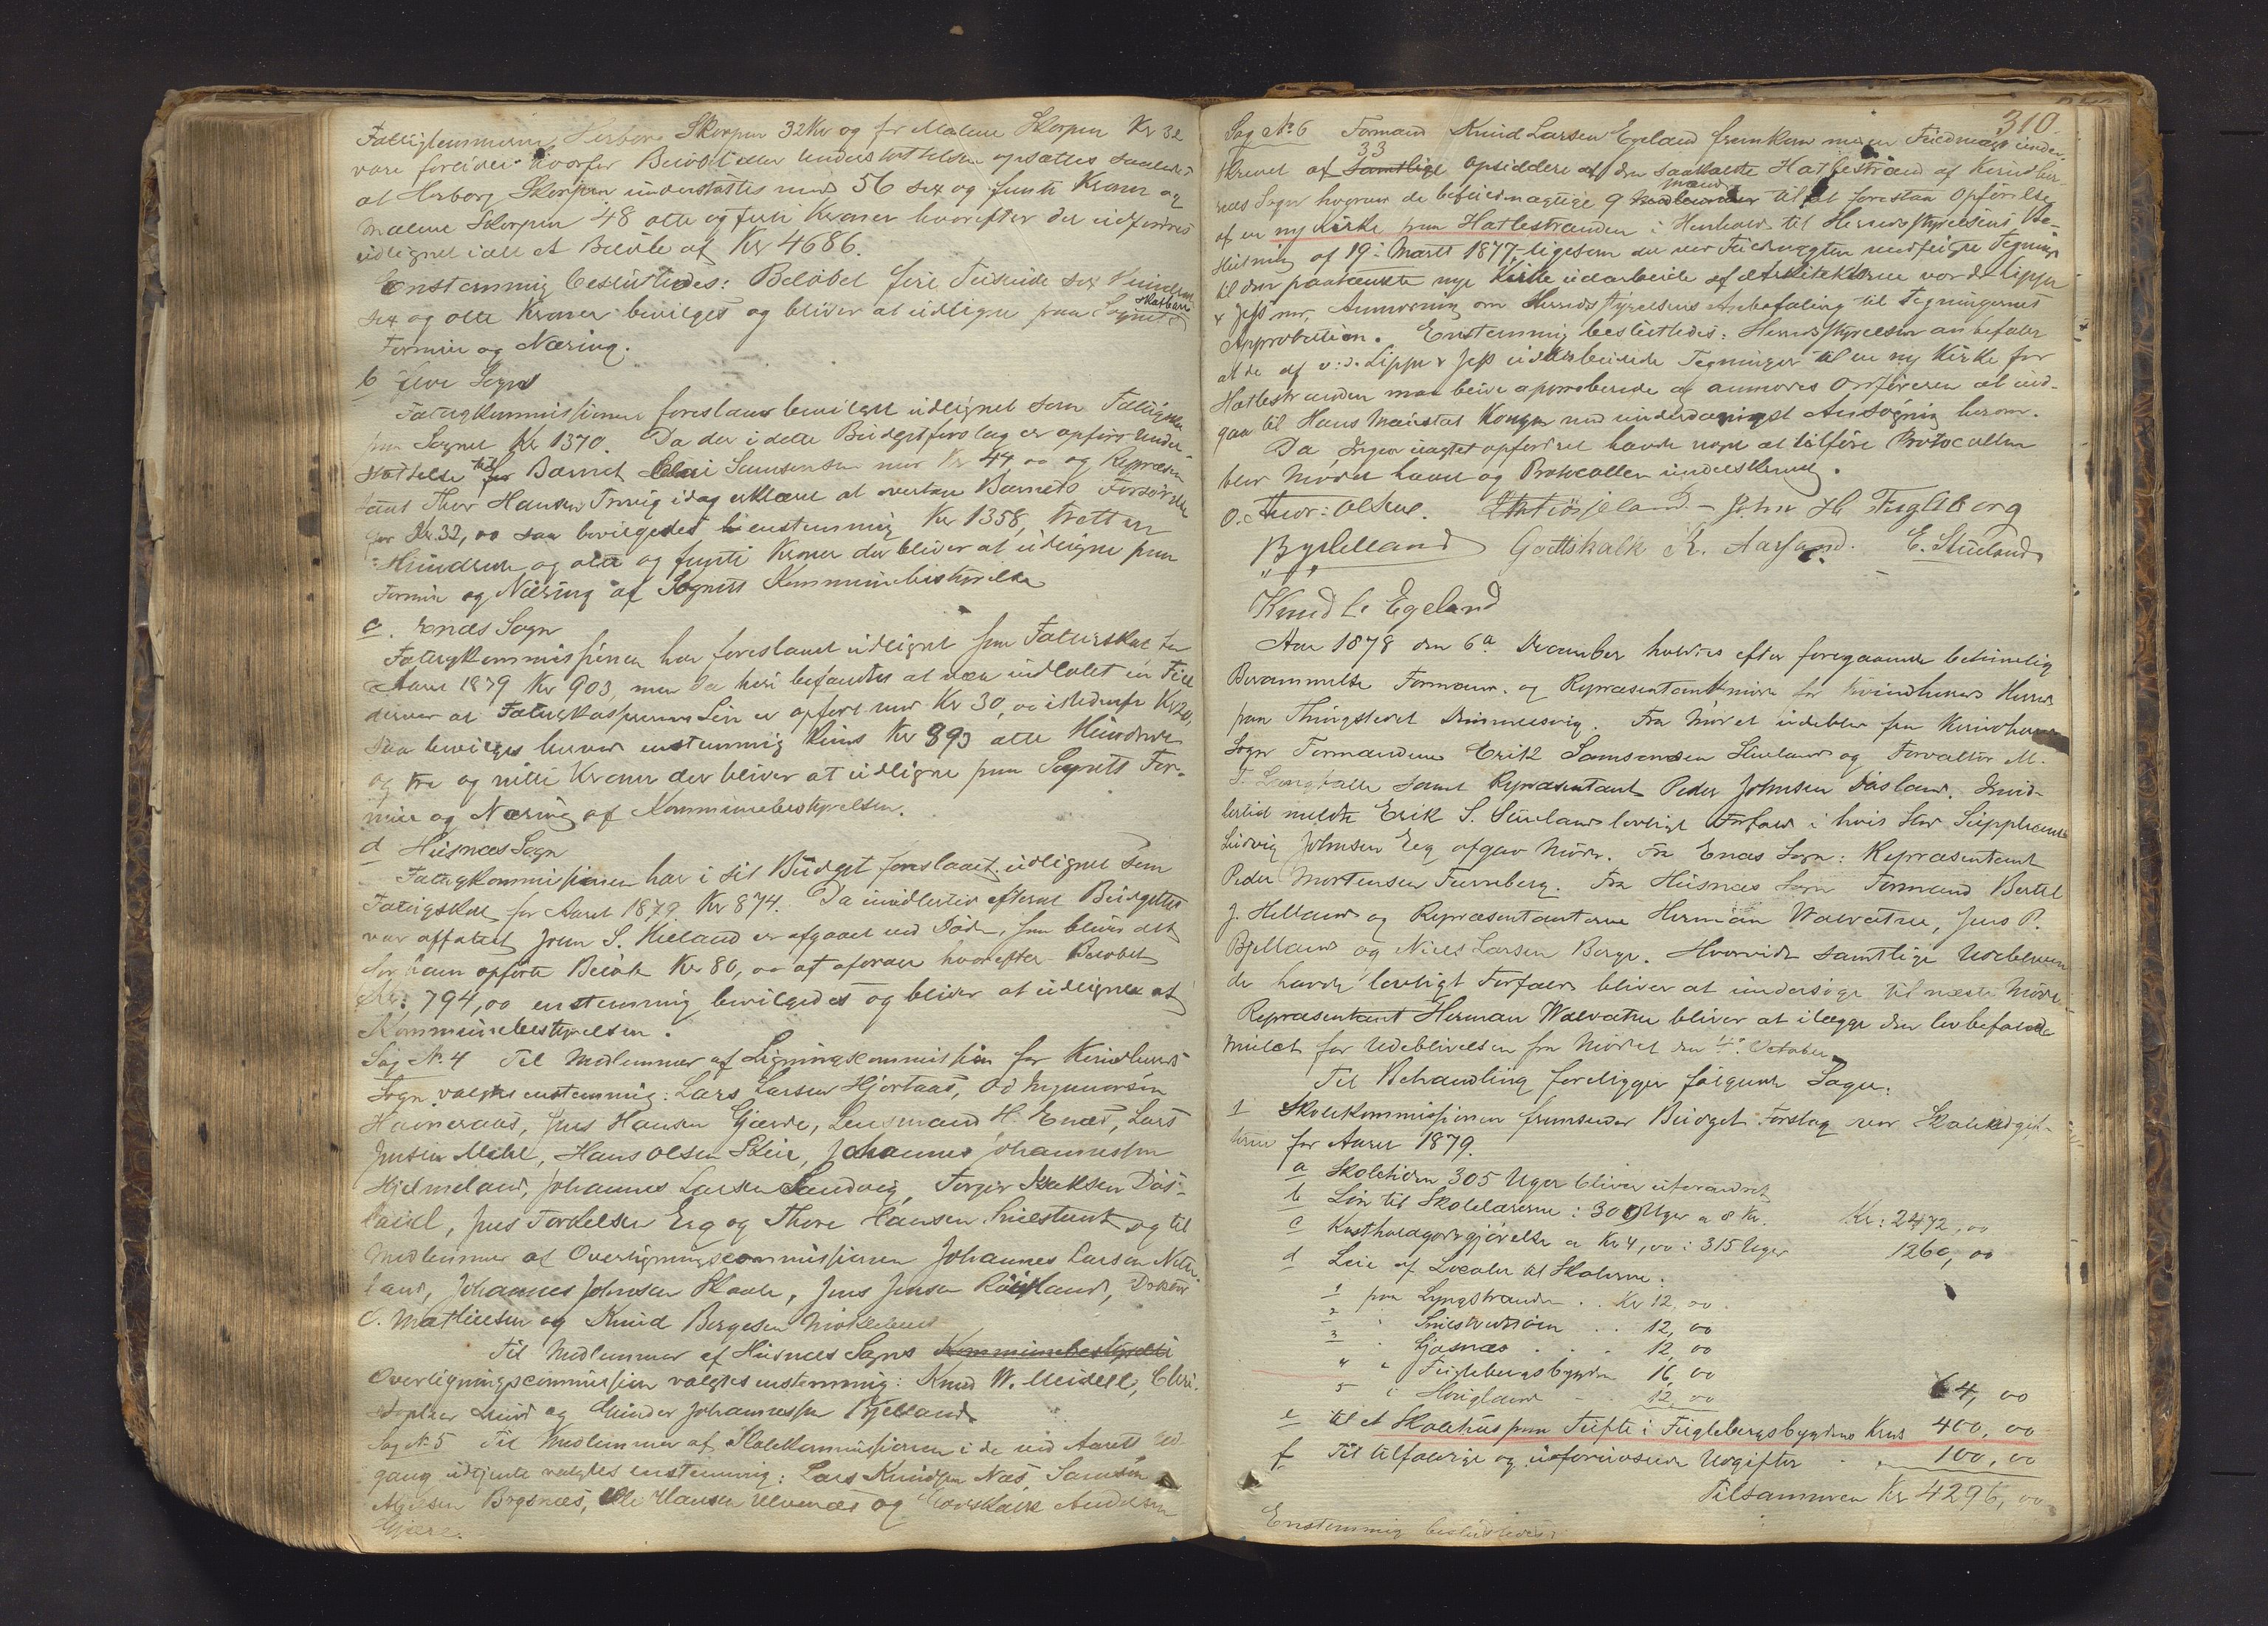 Fattiglemmerne Herborg Skorpen 32 Kr og for Malene Skorpen Kr 32
vare forlidet hvorfor Understøttelsen opsættes saaledes
at Herborg Skorpen understøttes med 56 sex og femti Kroner og
Malene Skorpen 48 otte og firti Kroner hvorefter der udfordres
udlignet i alt et Beløb af Kr 4686.
Enstemmig besluttedes: Beløbet fire Tusinde sex Hundrede
sex og otte Kroner bevilges og bliver at udligne paa Sognets skatbare
Formue og Næring.
b Sogn
Fattigkommissionen foreslaar bevilget udlignet som Fattigskat
paa Sognet Kr 1370. Da der i dette Budgetforslag er opført Under-
støttelse til Barnet Samsonsen med Kr 44,00 og Repræsen-
tant Thor Hansen idag erklæret at overtage Barnets Forsørgelse
for Kr. 32,00 saa bevilgedes enstemmig Kr 1358, tretten
Hundrede og otte og femti Kroner der bliver at udligne paa
Formue og Næring af Sognets Kommunebestyrelse
c. Enæs Sogn
Fattigkommissionen har foreslaaet udlignet som Fattigskat for
Aaret 1879 Kr 903, men da heri befandtes at være indløbet en Feil
derved at Fattigkasserens Løn er opført med Kr 30,00 istedetfor Kr 20,
saa bevilges herved enstemmig kuns Kr 893 otte Hundrede
og tre og nitti Kroner der bliver at udligne paa Sognets For-
mue og Næring af Kommunebestyrelsen.
d Husnæs Sogn
Fattigkommissionen har i sit Budget foreslaaet udlignet som
Fattigskat for Aaret 1879 Kr 874. Da imidlertid efterat Budgettet
var affattet John S. Kieland er afgaaet ved Døden, saa bliver det
for ham opførte Beløb Kr 80,00 at afdrage hvorefter Beløbet
Kr: 794,00 enstemmig bevilgedes og bliver at udligne af
Kommunebestyrelsen.
Sag No. 4 Til Medlemmer af Ligningscommission for Kvindherreds
Sogn valgtes enstemmig: Lars Larsen Hjortaas, Od Ingmorsen
Havneraas, Jens Hansen Gjerde, Lensmand H. Enæs, Lars
Jensen Mehl, Hans Olsen Skeie, Johannes Johannessen
Hjelmeland, Johannes Larsen Sandvig, Torger Isaksen Døs-
land, Jens Torkelsen Eeg og Thore Hansen Snilstveit og til
Medlemmer af Overligningscommissionen Johannes Larsen Nets
land, Johannes Johnsen Skaale, Jens Jensen Røisland, Doktor
C. Mathiesen og Knud Bergesen Mikkelnes
Til Medlemmer af Husnæs Sogns Kommunebestyrelse
Overligningscommission valgtes enstemmig: Knud W. Meidell, Chri-
stopher Lund og Gunder Johannessen Bjelland.
Sag No 5 Til Medlemmer af Skolekommissionen i de ved Aarets Ud-
gang udtjente valgtes enstemmig: Lars Knudsen Næs, Samson
Axelsen Bogsnæs, Ole Hansen Ulvenæs og Godskalk Andersen
Gjære.
310.
Sag No 6 Formand Knud Larsen Egeland fremkom med en Fuldmagt under-
skrevet af samtlige 33 Opsiddere af den saakaldte Hatlestrand af Kvindher-
reds Sogn hvorved de befuldmægtige 9 Medlemmer mænd til at forestaa Opførelse
af en ny Kirke paa Hatlestranden i Henhold til Herredsstyrelsens Be-
slutning af 19de Marts 1877, ligesom der ved Fuldmagten medfølger Tegning
til den paatænkte nye Kirke udarbeidet af Arkitekterne von der Lippe
& Jess med Anmodning om Herredsstyrelsens Anbefaling til Tegningernes
Approbation. Enstemmig besluttedes: Herredsstyrelsen anbefaler
at de af v: d. Lippe & Jess udarbeidede Tegninger til en ny Kirke for
Hatlestranden maa blive approberede og anmodes Ordføreren at ind-
gaa til Hans Majestæt Kongen med underdanigst Ansøgning herom.
Da Ingen uagtet opfordret havde noget at tilføre Protocollen
blev Mødet hævet og Protocollen underskreven.
O. Andr: Olsen. - John H Fugleberg
Bjelland Godtskalk K. Aarsand. E. Stueland
Knud L. Egeland
Aar 1878 den 6te December holdtes efter foregaaende betimelig
Berammelse Formænd- og Repræsentantmøde for Kvindherreds Herred
paa Thingstedet Dimmelsvig. Fra Mødet udeblev fra Kvindherreds
Sogn Formændene Erik Samsonsen Stueland og Forvalter M.
T. Langballe samt Repræsentant Peder Johnsen Døsland. Imid-
lertid meldte Erik S. Stueland lovligt Forfald i hvis Sted Suppleant
Ludvig Johnsen Eeg afgav Møde. Fra Enæs Sogn: Repræsentant
Peder Mortensen Furreberg. Fra Husnæs Sogn Formand Bertel
J. Helland og Repræsentanterne Herman Walvatne, Jens P.
Bjelland og Niels Larsen Berge. Hvorvidt samtlige Udebleven-
de havde lovligt Forfald bliver at undersøge til næste Møde.
Repræsentant Herman Walvatne bliver at ilægge den lovbefalede
Mulct for Udeblivelsen fra Mødet den 4de October.
Til Behandling foreligger følgende Sager.
1 Skolekommissionen fremsender Budget Forslag ved Skoleudgif-
terne for Aaret 1879.
a Skoletiden 305 Uger bliver uforandret
b Løn til Skolelærerne: 309 Uger a 8 Kr. Kr: 2472,00
c Kostholdgodtgjørelse a Kr 4,00 i 315 Uger 1260,00
d Leie af Locale til Skolerne:
1 paa Lyngstranden .. Kr 12,00.
2 " Snilstveitøen .. 12,00
3 " Gjøsnæs . . . 12,00
4 " Fuglebergsbygden 16,00
5 " Hougland - 12,00 64,00
e til et Skolehus paa Tufte i Fuglebergsbygdens Kreds 400,00
f Til tilfældige og uforudseede Udgifter 100,00
Tilsammen Kr 4296,00
Enstemmig besluttedes: